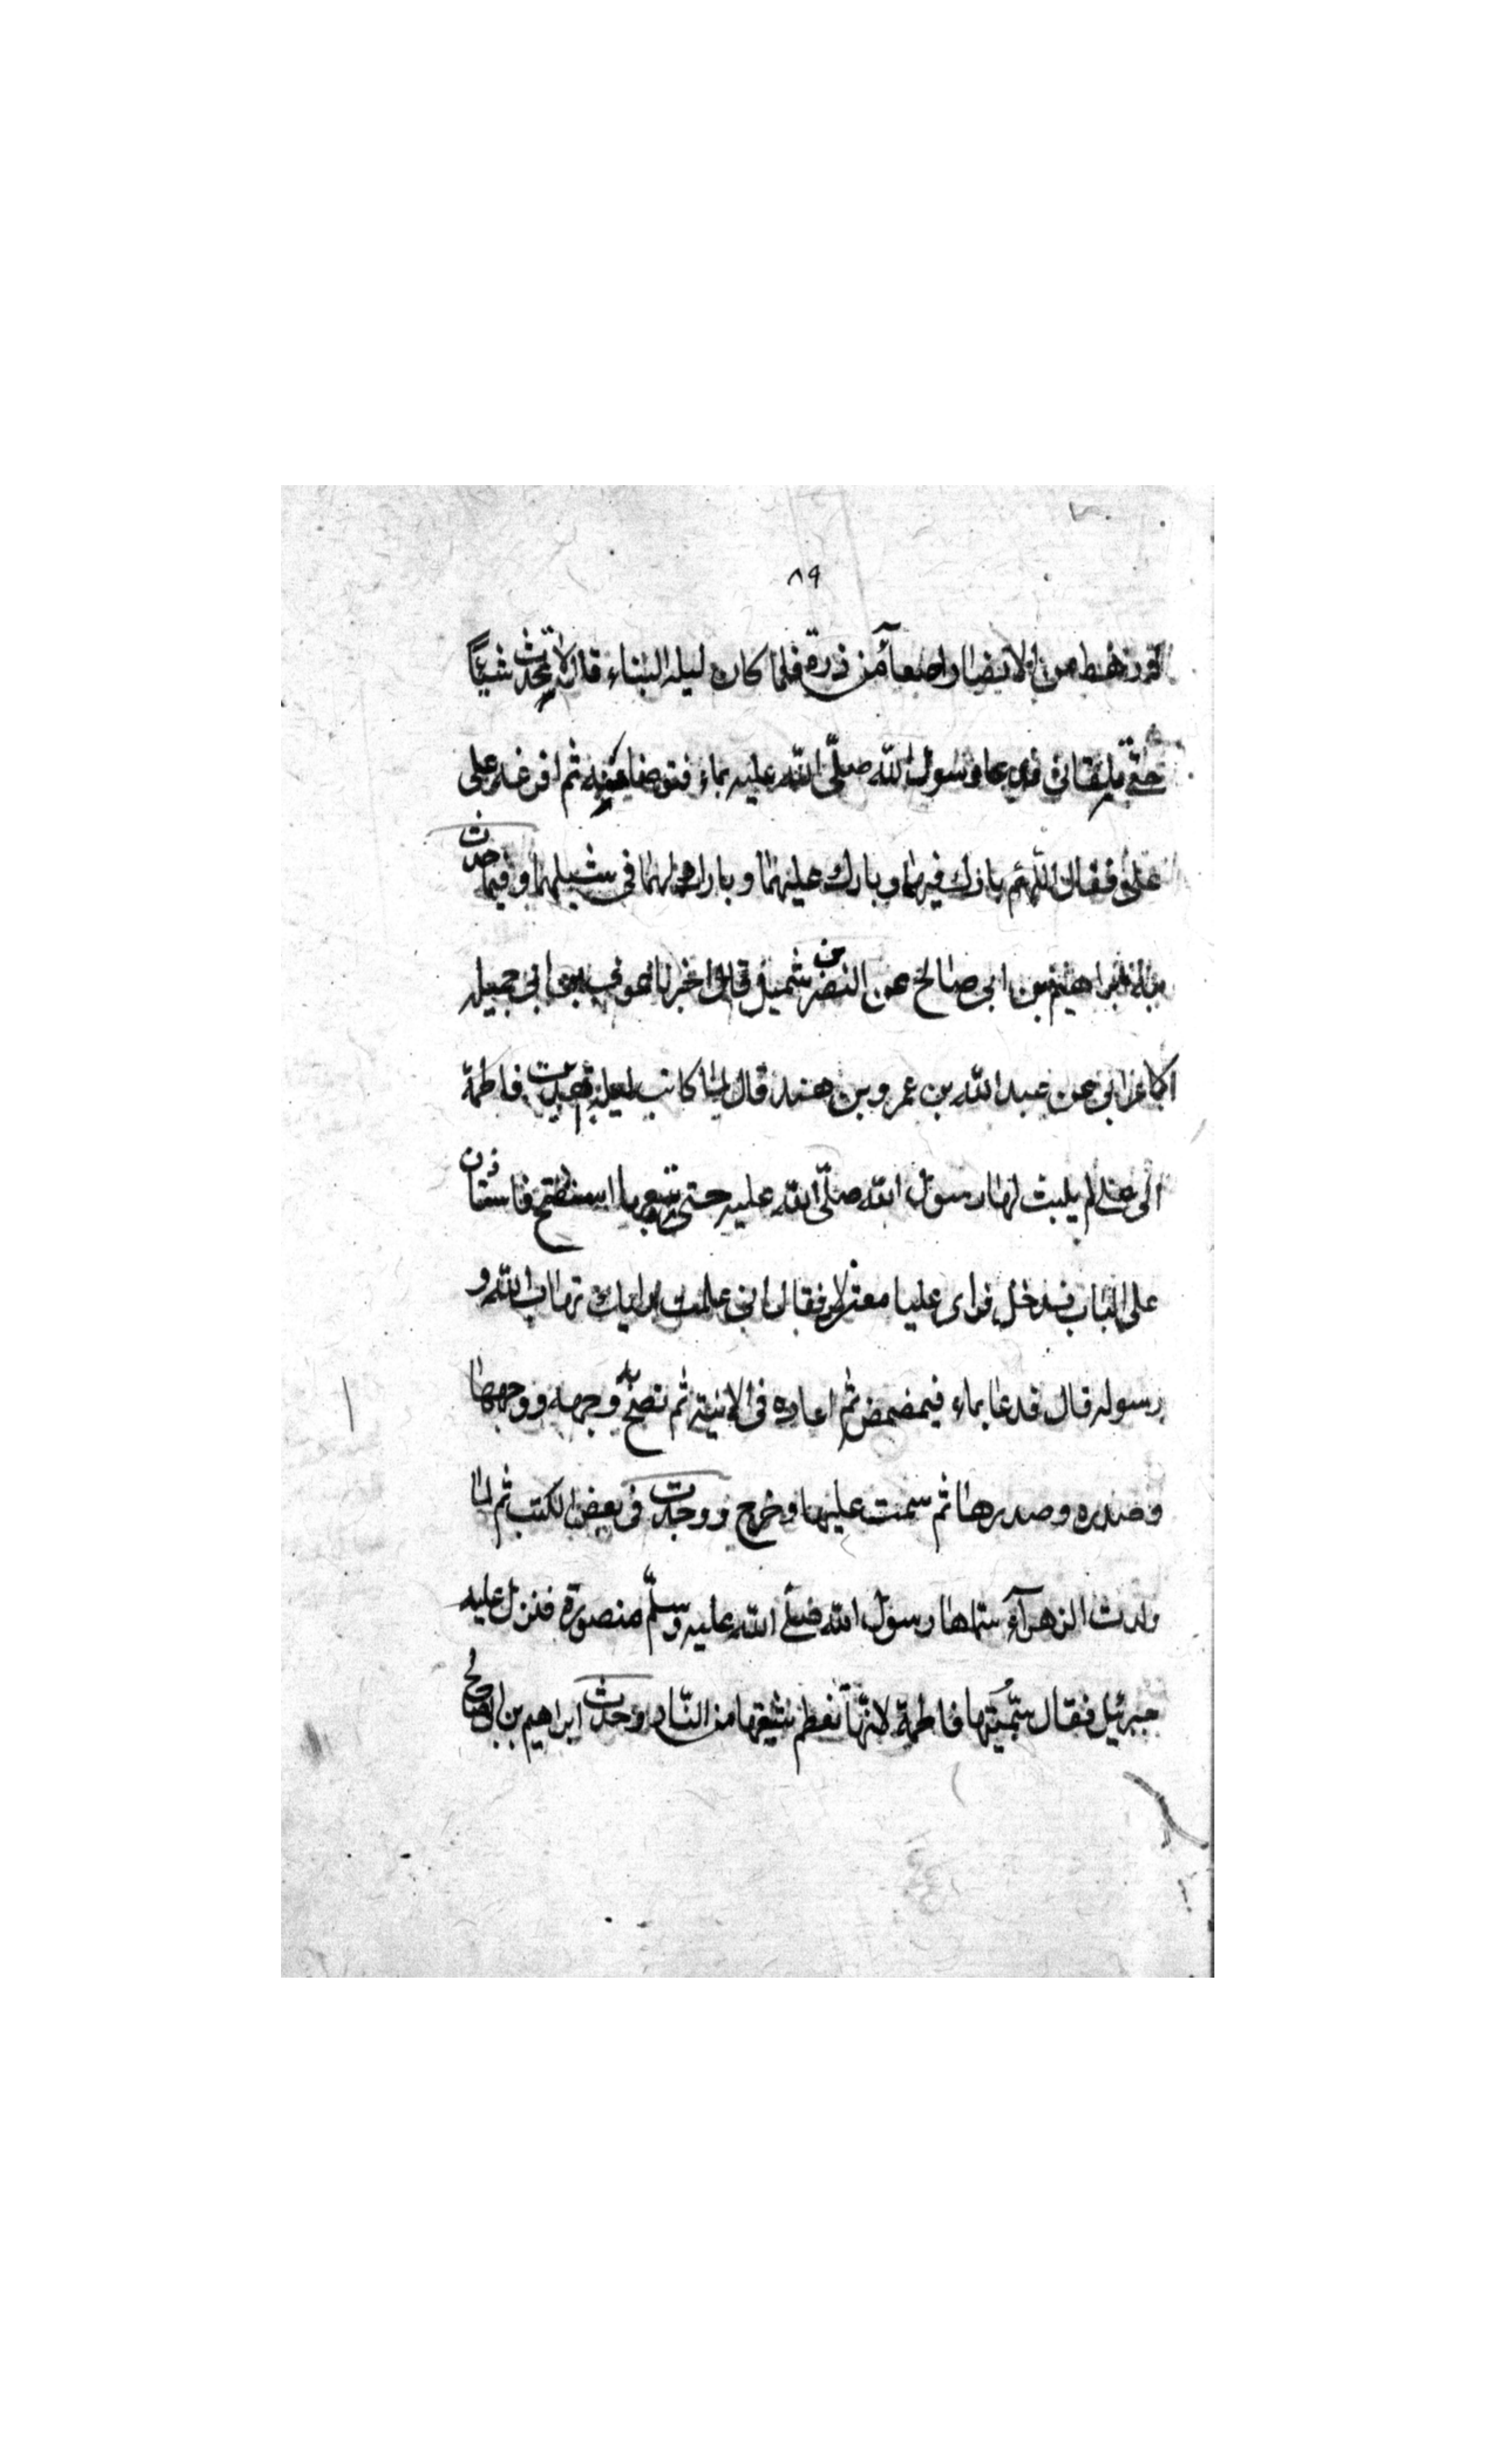 ٨٩
رهط من الانصار اصعا من ذرة فلما كان ليلة البناء قال لا تحدث شيئاً
حتى تلقاني فدعا رسول الله صلّى الله عليه بماء فتوضا فيه ثم افرغه على
على فقال اللهم بارك فيهما وبارك عليهما وبارك لهما فى شبليهما وفيما حدث
به ابراهيم بن ابى صالح عن النضر بن شميل قال اخبرنا عوف بن ابى جميلة
الاعرابى عن عبد الله بن عمرو بن هند قال لما كانت ليلة فاطمة
الى على لم يلبث لها رسول الله صلّى الله عليه حتى فاستأذن
على الباب فدخل فراى عليا معتزلا فقال انى علمت انك تهاب الله و
رسوله قال فدعا بماء فيمضمض ثم اعاده فى الانية ثم نضح به وجهه ووجهها
وصدره وصدرها ثم سمت عليها وخرج ووجدت فى بعض الكتب ثم لما
ولدت الزهرآء سماها رسول الله صلى الله عليه وسلّم منصورة فنزل عليه
جبرئيل فقال سمّيتها فاطمة لانّها تفطم شيعتها من النّار وحدث ابراهيم بن ابى صالح